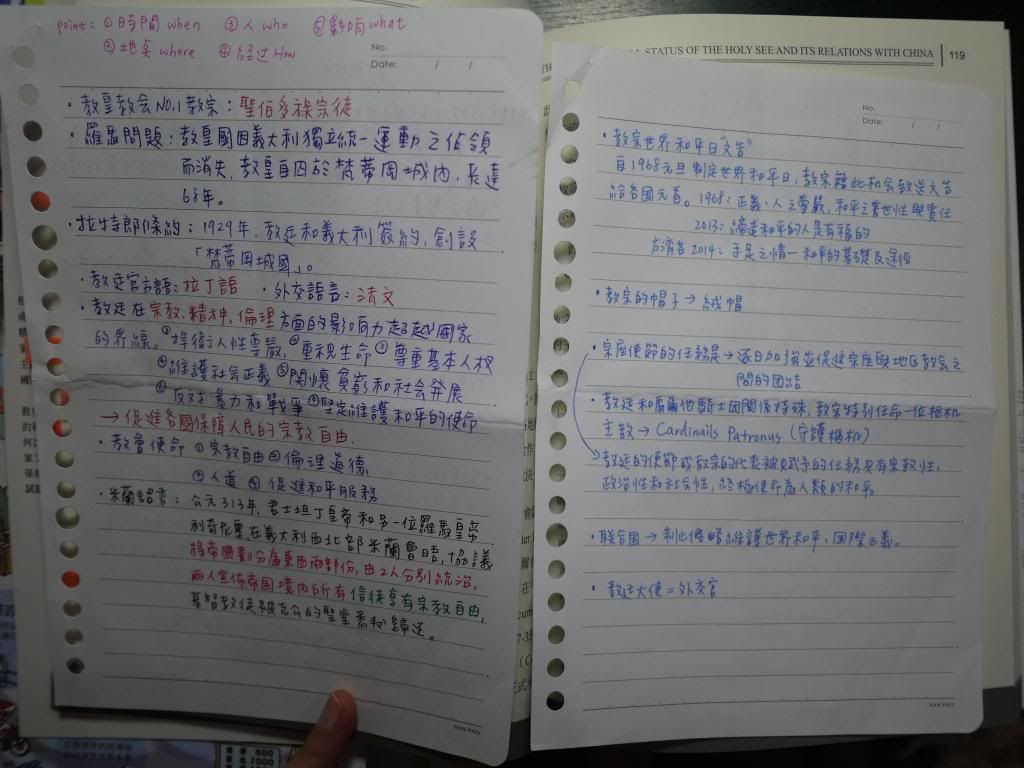 point: ①時間 when ③人 who ⑤影响 what
②地点 where ④经过 How
No.
Date: / /
・教皇教会 No.1 教宗：聖伯多祿宗徒
・羅馬問題：教皇國因義大利獨立統一運動之佔領
而消失，教皇自囚於梵蒂岡城內，長達
68年。
・拉特郎條約：1929年，教廷和義大利簽約，創設
「梵蒂岡城國」。
・教廷官方語：拉丁語 ・外交語言：法文
・教廷在宗教、精神、倫理方面的影响力超越國家
的界線。①捍衛人性尊嚴，②重視生命③尊重基本人权
④維護社会正義⑤関懷貧窮和社会發展
⑥反对暴力和戰爭⑦堅定維護和平的使命
→促進各國保障人民的宗教自由.
・教會使命 ①宗教自由②倫理道德
③人道 ④促進和平服務
・米蘭詔書：公元313年，君士坦丁皇帝和另一位羅馬皇帝
利奇尼里在義大利西北部米蘭會晤，協議
將帝國劃分為東西兩部份，由2人分別統治，
兩人宣佈帝国境内所有信徒享有宗教自由，
基督教徒被充公的聖堂悉數歸还。
NAN PAO
STATUS OF THE HOLY SEE AND ITS RELATIONS WITH CHINA 119
No.
Date: / /
・教宗世界和平日"文告"
自1968元旦制定世界和平日，教宗藉此机会致送文告
給各国元首。1968：正義、人之尊嚴，和平之普世性與責任
2013：締造和平的人是有福的
方濟各2014：手足之情－和平的基礎及途徑
・教宗的帽子→絨帽
・宗座使節的任務是→逐日加強並促進宗座與地区教会之
間的团結
・教廷和馬爾他騎士团関係特殊，教宗特別任命一位樞机
主教→Cardinails Patronus（守護樞机）
教廷的使節或教宗的代表被賦予的任務具有宗教性，
政治性和社会性，終極使命為人類的和平。
・联合国→制止侵略維護世界和平、国際正義。
・教廷大使＝外交官
NAN PAO
500
1000